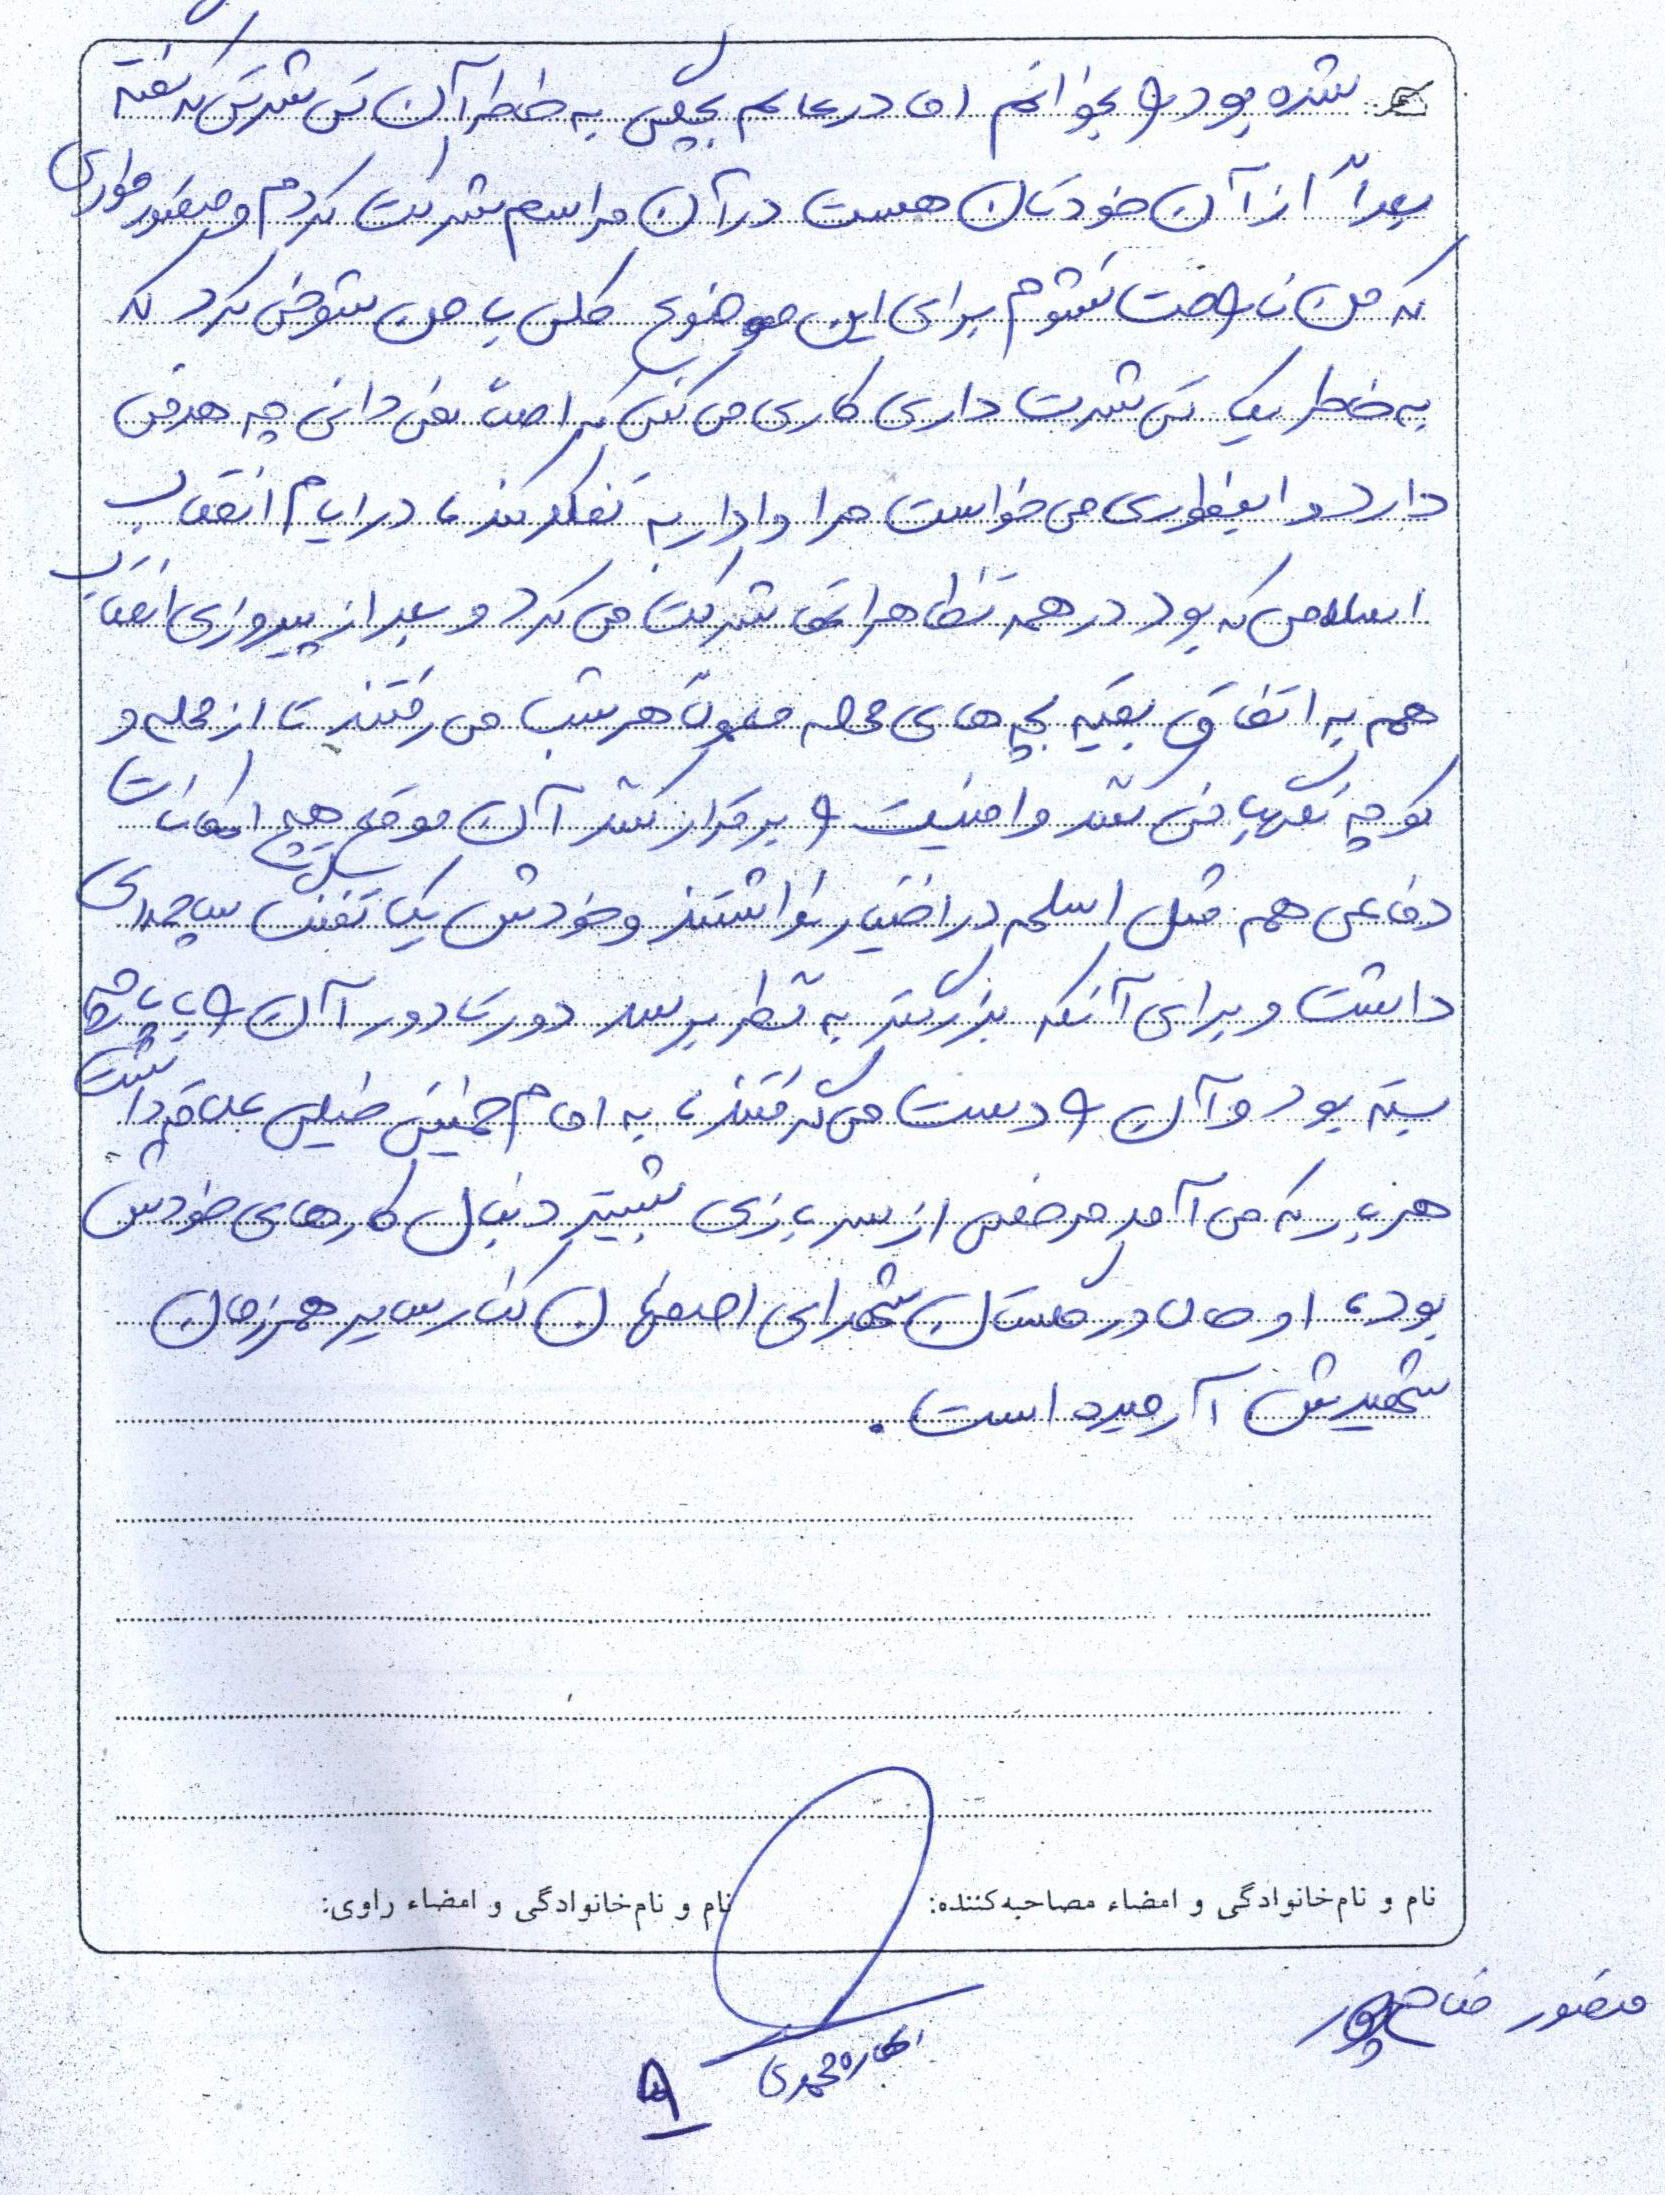 شده بود را بخوانم اما در عالم بچگی به خاطر آن تی شرتی که گفته
بعداً از آن خودتان هست در آن مراسم شرکت کردم و منصور طوری
که من ناراحت نشوم برای این موضوع کلی با من شوخی کرد که
به خاطر یک تی شرت داری کاری می کنی که اصلاً نمی دانی چه هدفی
دارد و اینطوری می خواست مرا وادار به تفکر کند، در ایام انقلاب
اسلامی که بود در همه تظاهراتها شرکت می کرد و بعد از پیروزی انقلاب
هم به اتفاق بقیه بچه های محله معمولاً هر شب می رفتند تا از محله و
کوچه نگهبانی کنند و امنیت را برقرار کنند آن موقع هیچ امکانات
دفاعی هم مثل اسلحه در اختیار نداشتند و خودش یک تفنگ ساچمه ای
داشت و برای آنکه بزرگتر به نظر برسد دور تا دور آن را با پارچه
بسته بود و آن را دست می گرفتند، به امام خمینی خیلی علاقه داشت
هر بار که می آمد مرخصی از سربازی بیشتر دنبال کارهای خودش
بود، او حالا در گلستان شهدای اصفهان کنار سایر همرزمان
شهیدش آرمیده است.
نام و نام‌خانوادگی و امضاء مصاحبه‌کننده: نام و نام‌خانوادگی و امضاء راوی:
منصور
محمدی